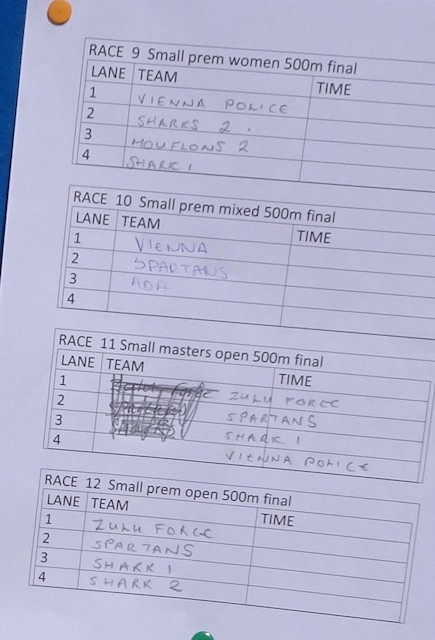 RACE 9 Small prem women 500m final
LANE TEAM TIME
1 VIENNA POLICE
2 SHARKS 2.
3 MOUFLONS 2
4 SHARK 1
RACE 10 Small prem mixed 500m final
LANE TEAM TIME
1 VIENNA
2 SPARTANS
3 ADA
4
RACE 11 Small masters open 500m final
LANE TEAM TIME
1 Force ZULU FORCE
2 SPARTANS
3 SHARK 1
4 VIENNA POLICE
RACE 12 Small prem open 500m final
LANE TEAM TIME
1 ZULU FORCE
2 SPARTANS
3 SHARK 1
4 SHARK 2